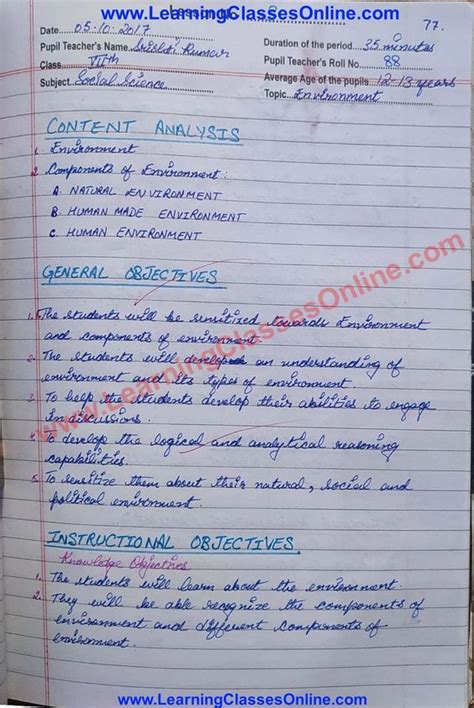 www.LearningClassesOnline.com
77.
Date 05-10-2017
Duration of the period 35 minutes
Pupil Teacher's Name Srishti Kumar
Pupil Teacher's Roll No 88
Class VIIth
Average Age of the pupils 12-13 years
Subject Social Science
Topic Environment
CONTENT ANALYSIS
1. Environment
2. Components of Environment:
A. NATURAL ENVIRONMENT
B. HUMAN MADE ENVIRONMENT
C. HUMAN ENVIRONMENT
GENERAL OBJECTIVES
1. The students will be sensitized towards Environment
and components of environment
2. The students will develop an understanding of
environment and its types of environment.
3. To help the students develop their abilities to engage
in discussions.
4. To develop the logical and analytical reasoning
capabilities.
5. To sensitize them about their natural, social and
political environment.
INSTRUCTIONAL OBJECTIVES
Knowledge Objectives
1. The students will learn about the environment.
2. They will be able recognize the components of
environment and different components of
environment.
www.LearningClassesOnline.com
www.LearningClassesOnline.com